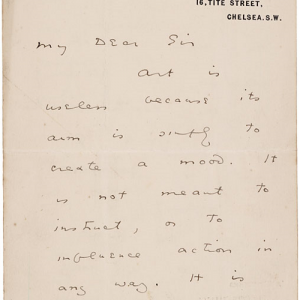 16, TITE STREET,
CHELSEA. S.W.
My Dear Sir
Art is
useless because its
aim is simply to
create a mood. It
is not meant to
instruct, or to
influence action in
any way. It is